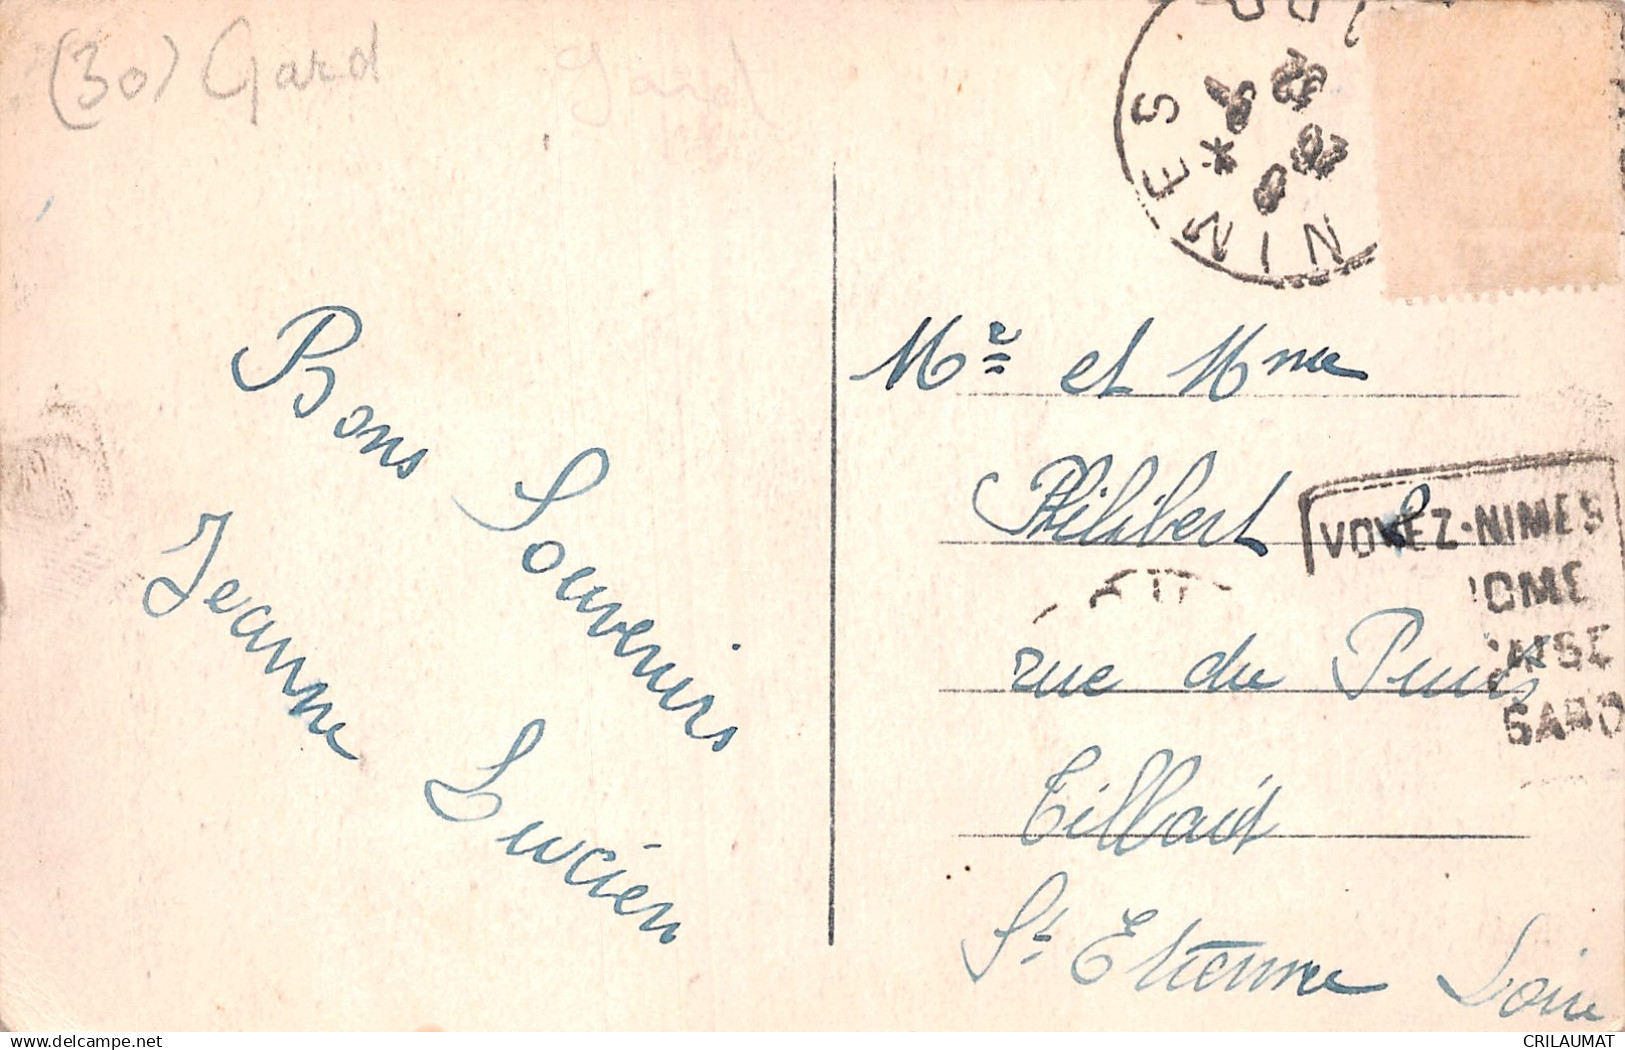 (30) Gard
Gard
NIMES
*
32
Bons Souvenirs
Jeanne Lucien
Mr et Mme
Philibert
rue du Puits
Tillait
St Etienne Loire
VOYEZ·NIMES
GARD
delcampe.net
CRILAUMAT